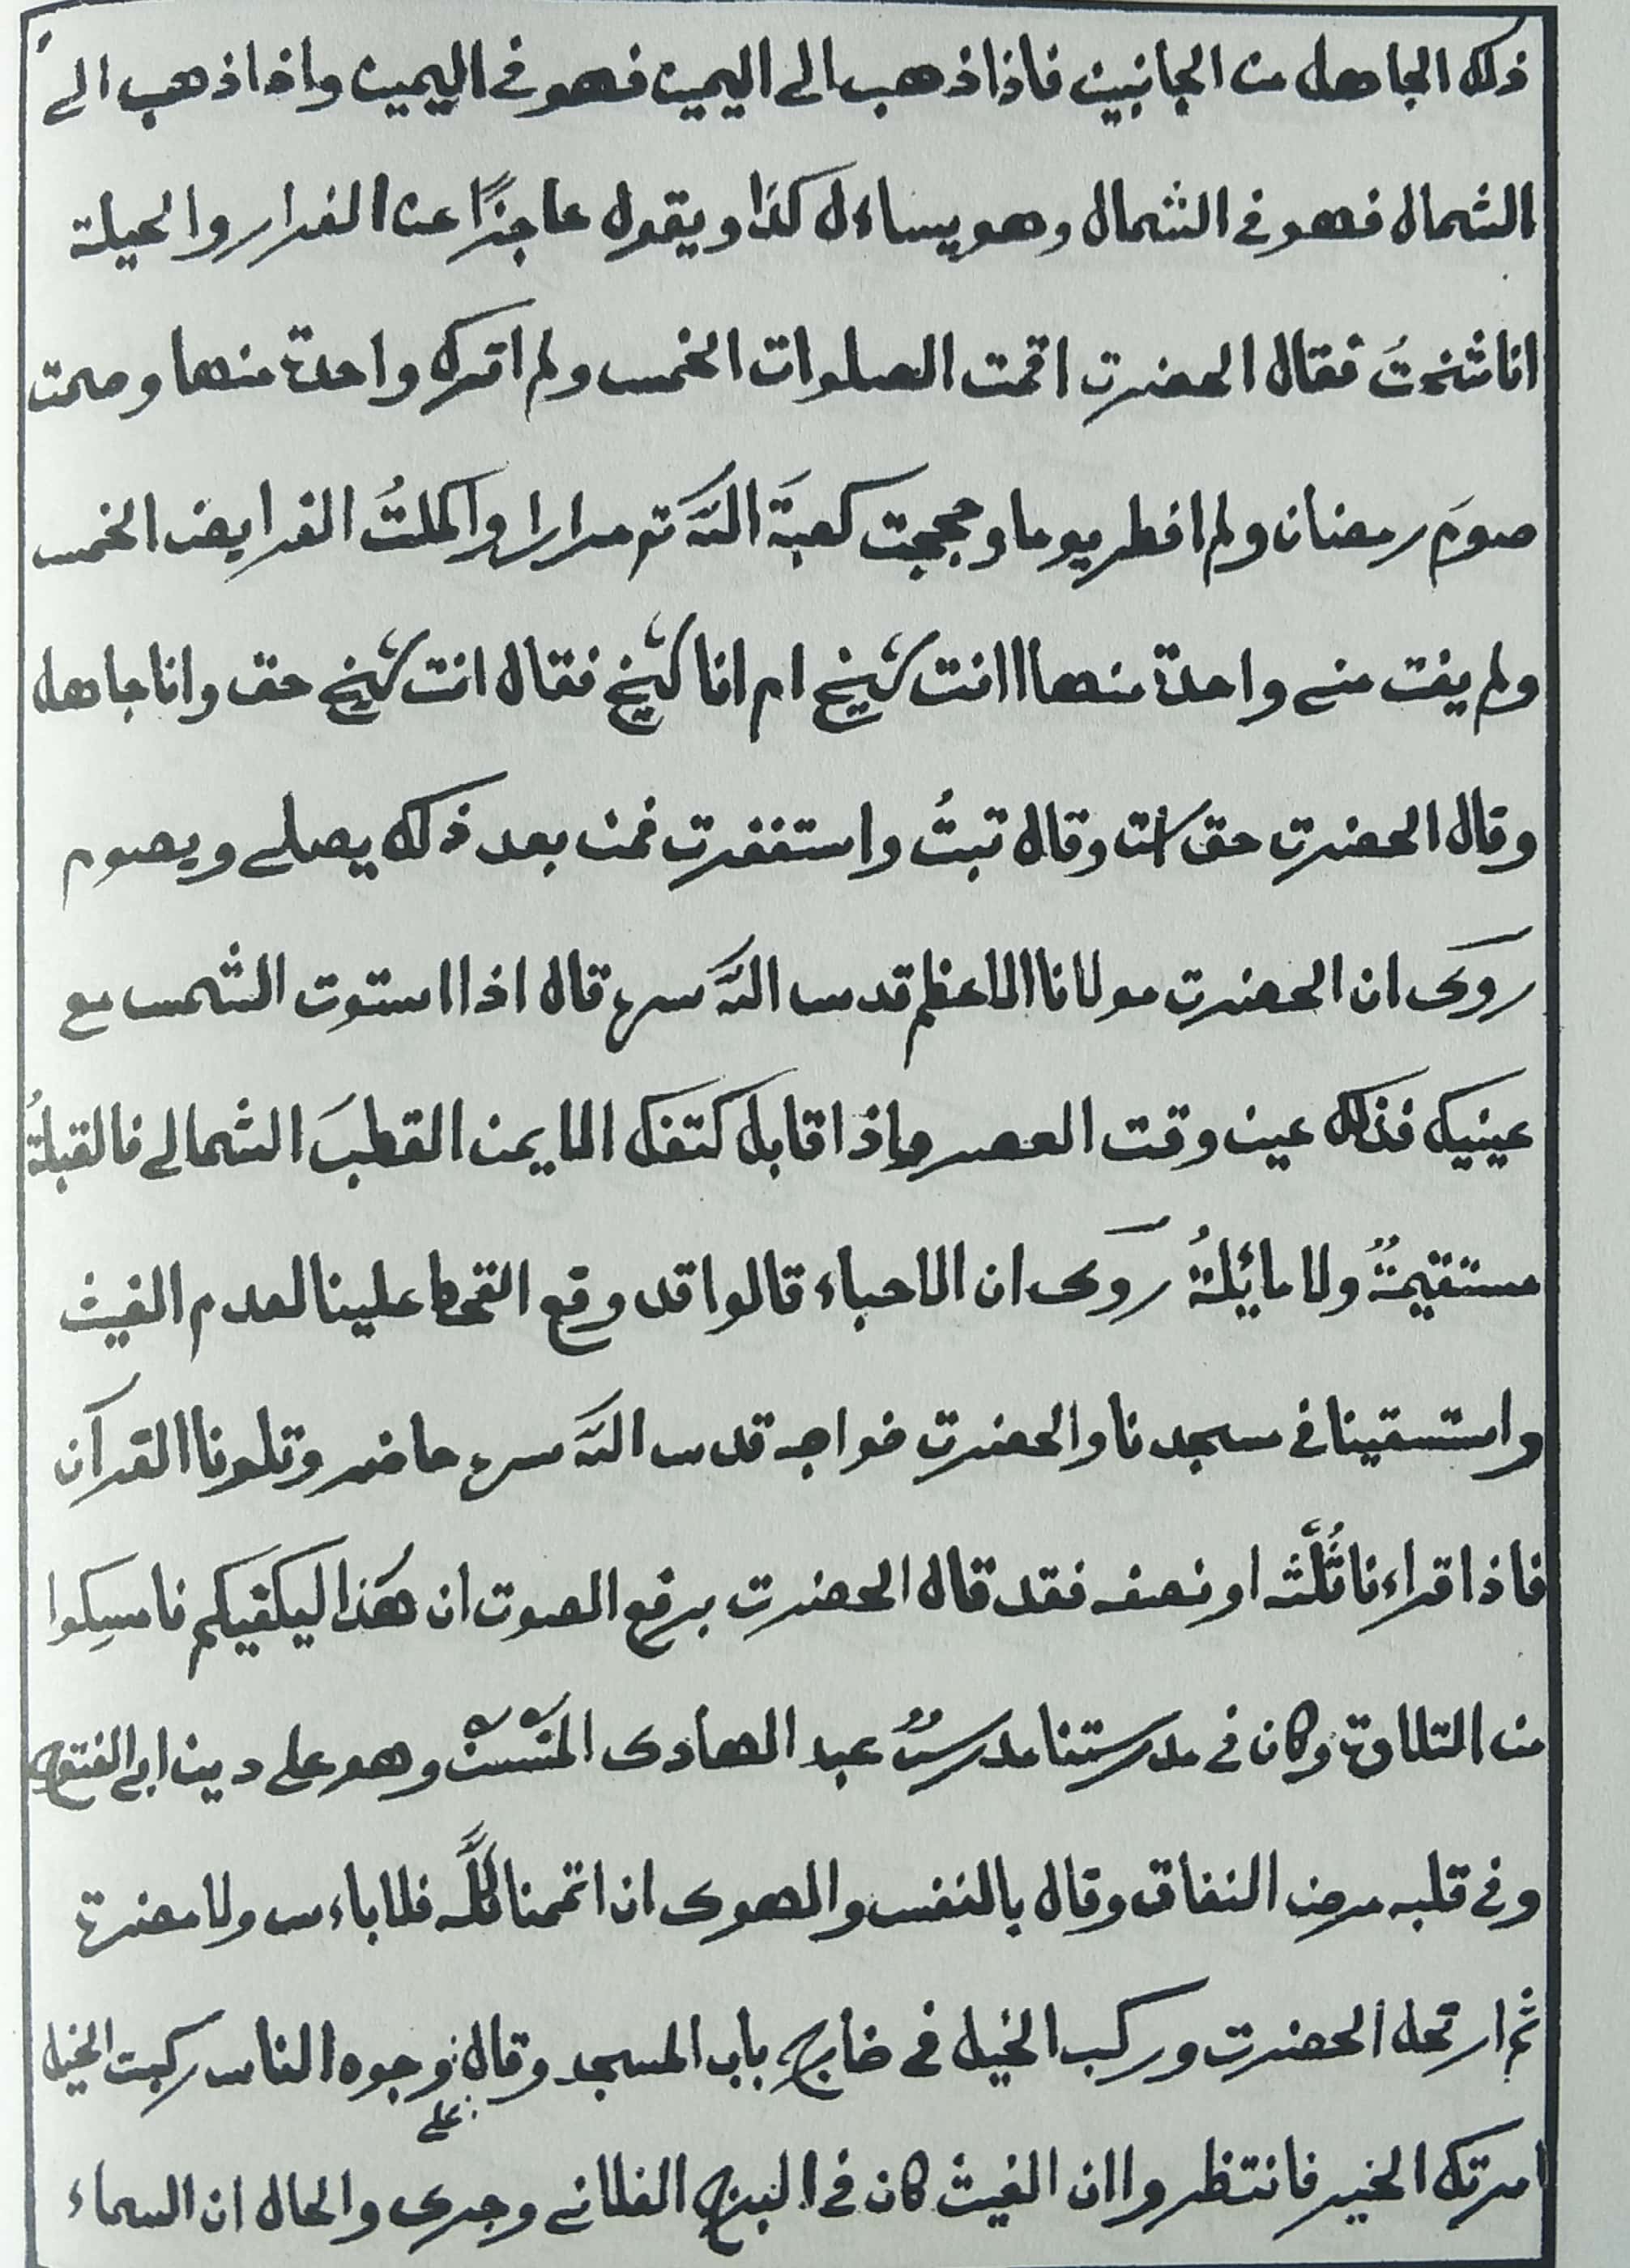 ذلك الجاهل من الجانبين فاذا ذهب الى اليمين فهو في اليمين واذا ذهب الى
الشمال فهو في الشمال وهو يساءل كذا ويقول عاجزًا عن الفرار والحيلة
انا شختُ فقال الحضرت اقمت الصلوات الخمس ولم اترك واحدة منها وصمت
صومَ رمضان ولم افطر يوما وحججت كعبةَ اللّه تع مرارا واكملتُ الفرايض الخمس
ولم يفت مني واحدة منها اانت شيخ ام انا شيخ فقال انت شيخ حق وانا جاهل
وقال الحضرت حق انت وقال تبتُ واستغفرت فمن بعد ذلك يصلي ويصوم
روى ان الحضرت مولانا الاعظم قدس اللّه سره قال اذا استوت الشمس مع
عينيك فذلك عين وقت العصر وإذا قابل كتفك الايمن القطبَ الشمالي فالقبلةُ
مستقيمةٌ ولا مائلةٌ روى ان الاحباء قالوا قد وقع القحط علينا لعدم الغيث
واستسقينا في مسجدنا والحضرت خواجه قدس اللّه سره حاضر وتلونا القرآن
فاذا قراءنا ثُلُثه او نصفه فقد قال الحضرت برفع الصوت ان هذا ليكفيكم فامسِكوا
من التلاوة وكان في مدرستنا مدرسٌ عبد الهادى وهو على دين ابي الفتوح
وفي قلبه مرض النفاق وقال بالنفس والهوى ان اتممنا كلَّه فلا باءس ولا مضرة
ثم ارتحل الحضرت وركب الخيل في خارج باب المسجد وقال في وجوه الناس ركبت الخيل
على
امرتك الخير فانتظروا ان الغيث كان في البنج الفلاني وجرى والحال ان السماء